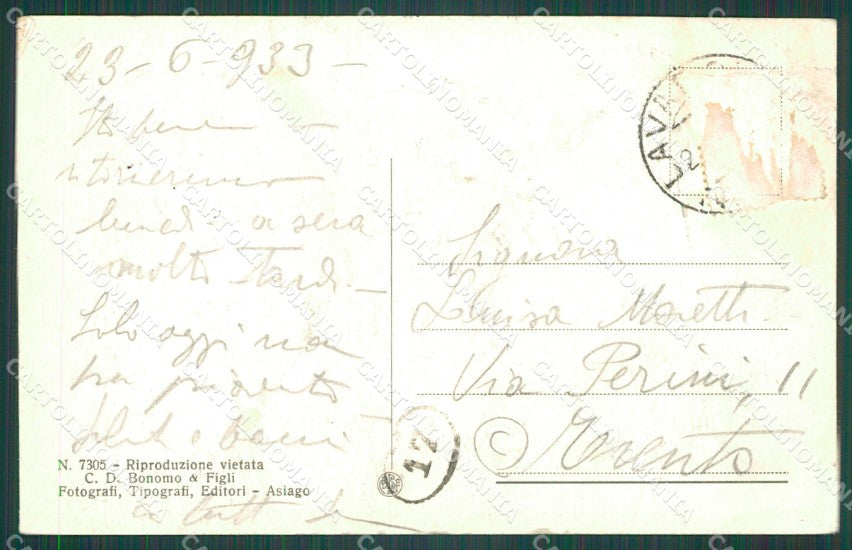 23-6-933-
Sto bene -
ritorneremo
lunedi a sera
molto tardi -
Solo oggi non
ha piovuto
Saluti e baci
a tutti
N. 7305 - Riproduzione vietata
C. D. Bonomo & Figli
Fotografi, Tipografi, Editori - Asiago
LAVAR
17
Signora
Luisa Moretti
Via Perini, 11
C
Trento
CARTOLINOMANIA